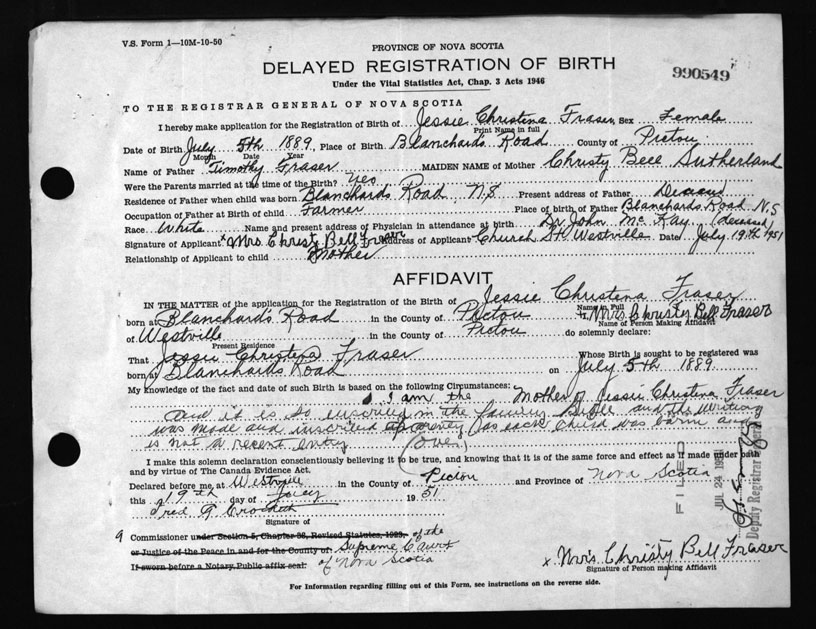 V.S. Form 1—10M-10-50
PROVINCE OF NOVA SCOTIA
DELAYED REGISTRATION OF BIRTH
990549
Under the Vital Statistics Act, Chap. 3 Acts 1946
TO THE REGISTRAR GENERAL OF NOVA SCOTIA
I hereby make application for the Registration of Birth of Jessie Christena Fraser, Sex Female
Print Name in full
Date of Birth July 5th 1889, Place of Birth Blanchards Road County of Pictou
Month Date Year
Name of Father Timothy Fraser MAIDEN NAME of Mother Christy Bell Sutherland
Were the Parents married at the time of the Birth? Yes
Residence of Father when child was born Blanchards Road N.S Present address of Father Deceased
Occupation of Father at Birth of child Farmer Place of birth of Father Blanchards Road N.S
Race White Name and present address of Physician in attendance at birth Dr John McKay (deceased)
Signature of Applicant x Mrs Christy Bell Fraser Address of Applicant Church St. Westville Date July 19th 1951
Relationship of Applicant to child Mother
AFFIDAVIT
IN THE MATTER of the application for the Registration of the Birth of Jessie Christena Fraser
Name in Full
born at Blanchard's Road in the County of Pictou I, Mrs Christy Bell Fraser
Name of Person Making Affidavit
of Westville in the County of Pictou do solemnly declare:
Present Residence
That Jessie Christena Fraser Whose Birth is sought to be registered was
born at Blanchards Road on July 5th 1889
My knowledge of the fact and date of such Birth is based on the following Circumstances:
I am the Mother of Jessie Christena Fraser
and it is so inscribed in the family Bible and the writing
was made and inscribed apparently as each child was born and
is not a recent entry (over)
I make this solemn declaration conscientiously believing it to be true, and knowing that it is of the same force and effect as if made under oath
and by virtue of The Canada Evidence Act.
Declared before me, at Westville in the County of Pictou and Province of Nova Scotia
this 19th day of July 1951
Fred G Crockett
Signature of
a Commissioner under Section 5, Chapter 36, Revised Statutes, 1923, of the
or Justice of the Peace in and for the County of Supreme Court
If sworn before a Notary Public affix seal. of Nova Scotia
x Mrs Christy Bell Fraser
Signature of Person making Affidavit
For Information regarding filling out of this Form, see instructions on the reverse side.
FILED
JUL 24 1951
Deputy Registrar